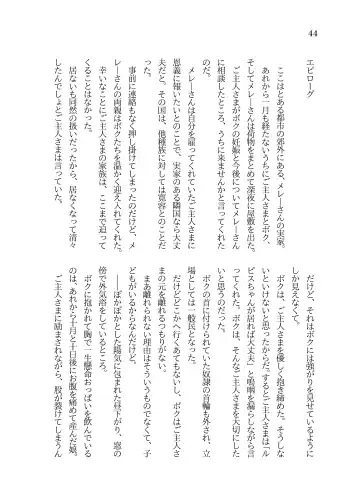 44
エピローグ
ここはとある都市の郊外にある、メレーさんの実家。
あれから一月も経たないうちにご主人さまとボク、
そしてメレーさんは荷物をまとめて深夜に屋敷を出た。
ご主人さまがボクの妊娠と今後についてメレーさん
に相談したところ、うちに来ませんかと言ってくれた
のだ。
メレーさんは自分を雇ってくれていたご主人さまに
恩義に報いたいとのことで、実家のある隣国なら大丈
夫だと。その国は、他種族に対しては寛容とのことだ
った。
事前に連絡もなく押し掛けてしまったのだけど、メ
レーさんの両親はボクたちを温かく迎え入れてくれた。
幸いなことにご主人さまの家族は、ここまで追って
くることはなかった。
居ないも同然の扱いだったから、居なくなって清々
したんでしょとご主人さまは言っていた。
だけど、それはボクには強がりを見せているように
しか見えなくて。
ボクは、ご主人さまを優しく抱き締めた。そうしな
いといけないと思ったからだ。するとご主人さまは「ル
ピスちゃんが居れば大丈夫」と嗚咽を漏らしながら言
ってくれた。ボクは、そんなご主人さまを大切にした
いと思うのだった。
ボクの首に付けられていた奴隷の首輪も外され、立
場としては一般民となった。
だけどどこかへ行くあてもないし、ボクはご主人さ
まの元を離れるつもりがない。
まあ離れられない理由はそういうものでなくて、子
どもがいるからなんだけど。
――ぽかぽかとした陽気に包まれた昼下がり、窓の
傍で外気浴をしているところ。
ボクに抱かれて胸で一生懸命おっぱいを飲んでいる
のは、あれから十月と十日後にお腹を痛めて産んだ娘。
ご主人さまに励まされながら、股が裂けてしまうん